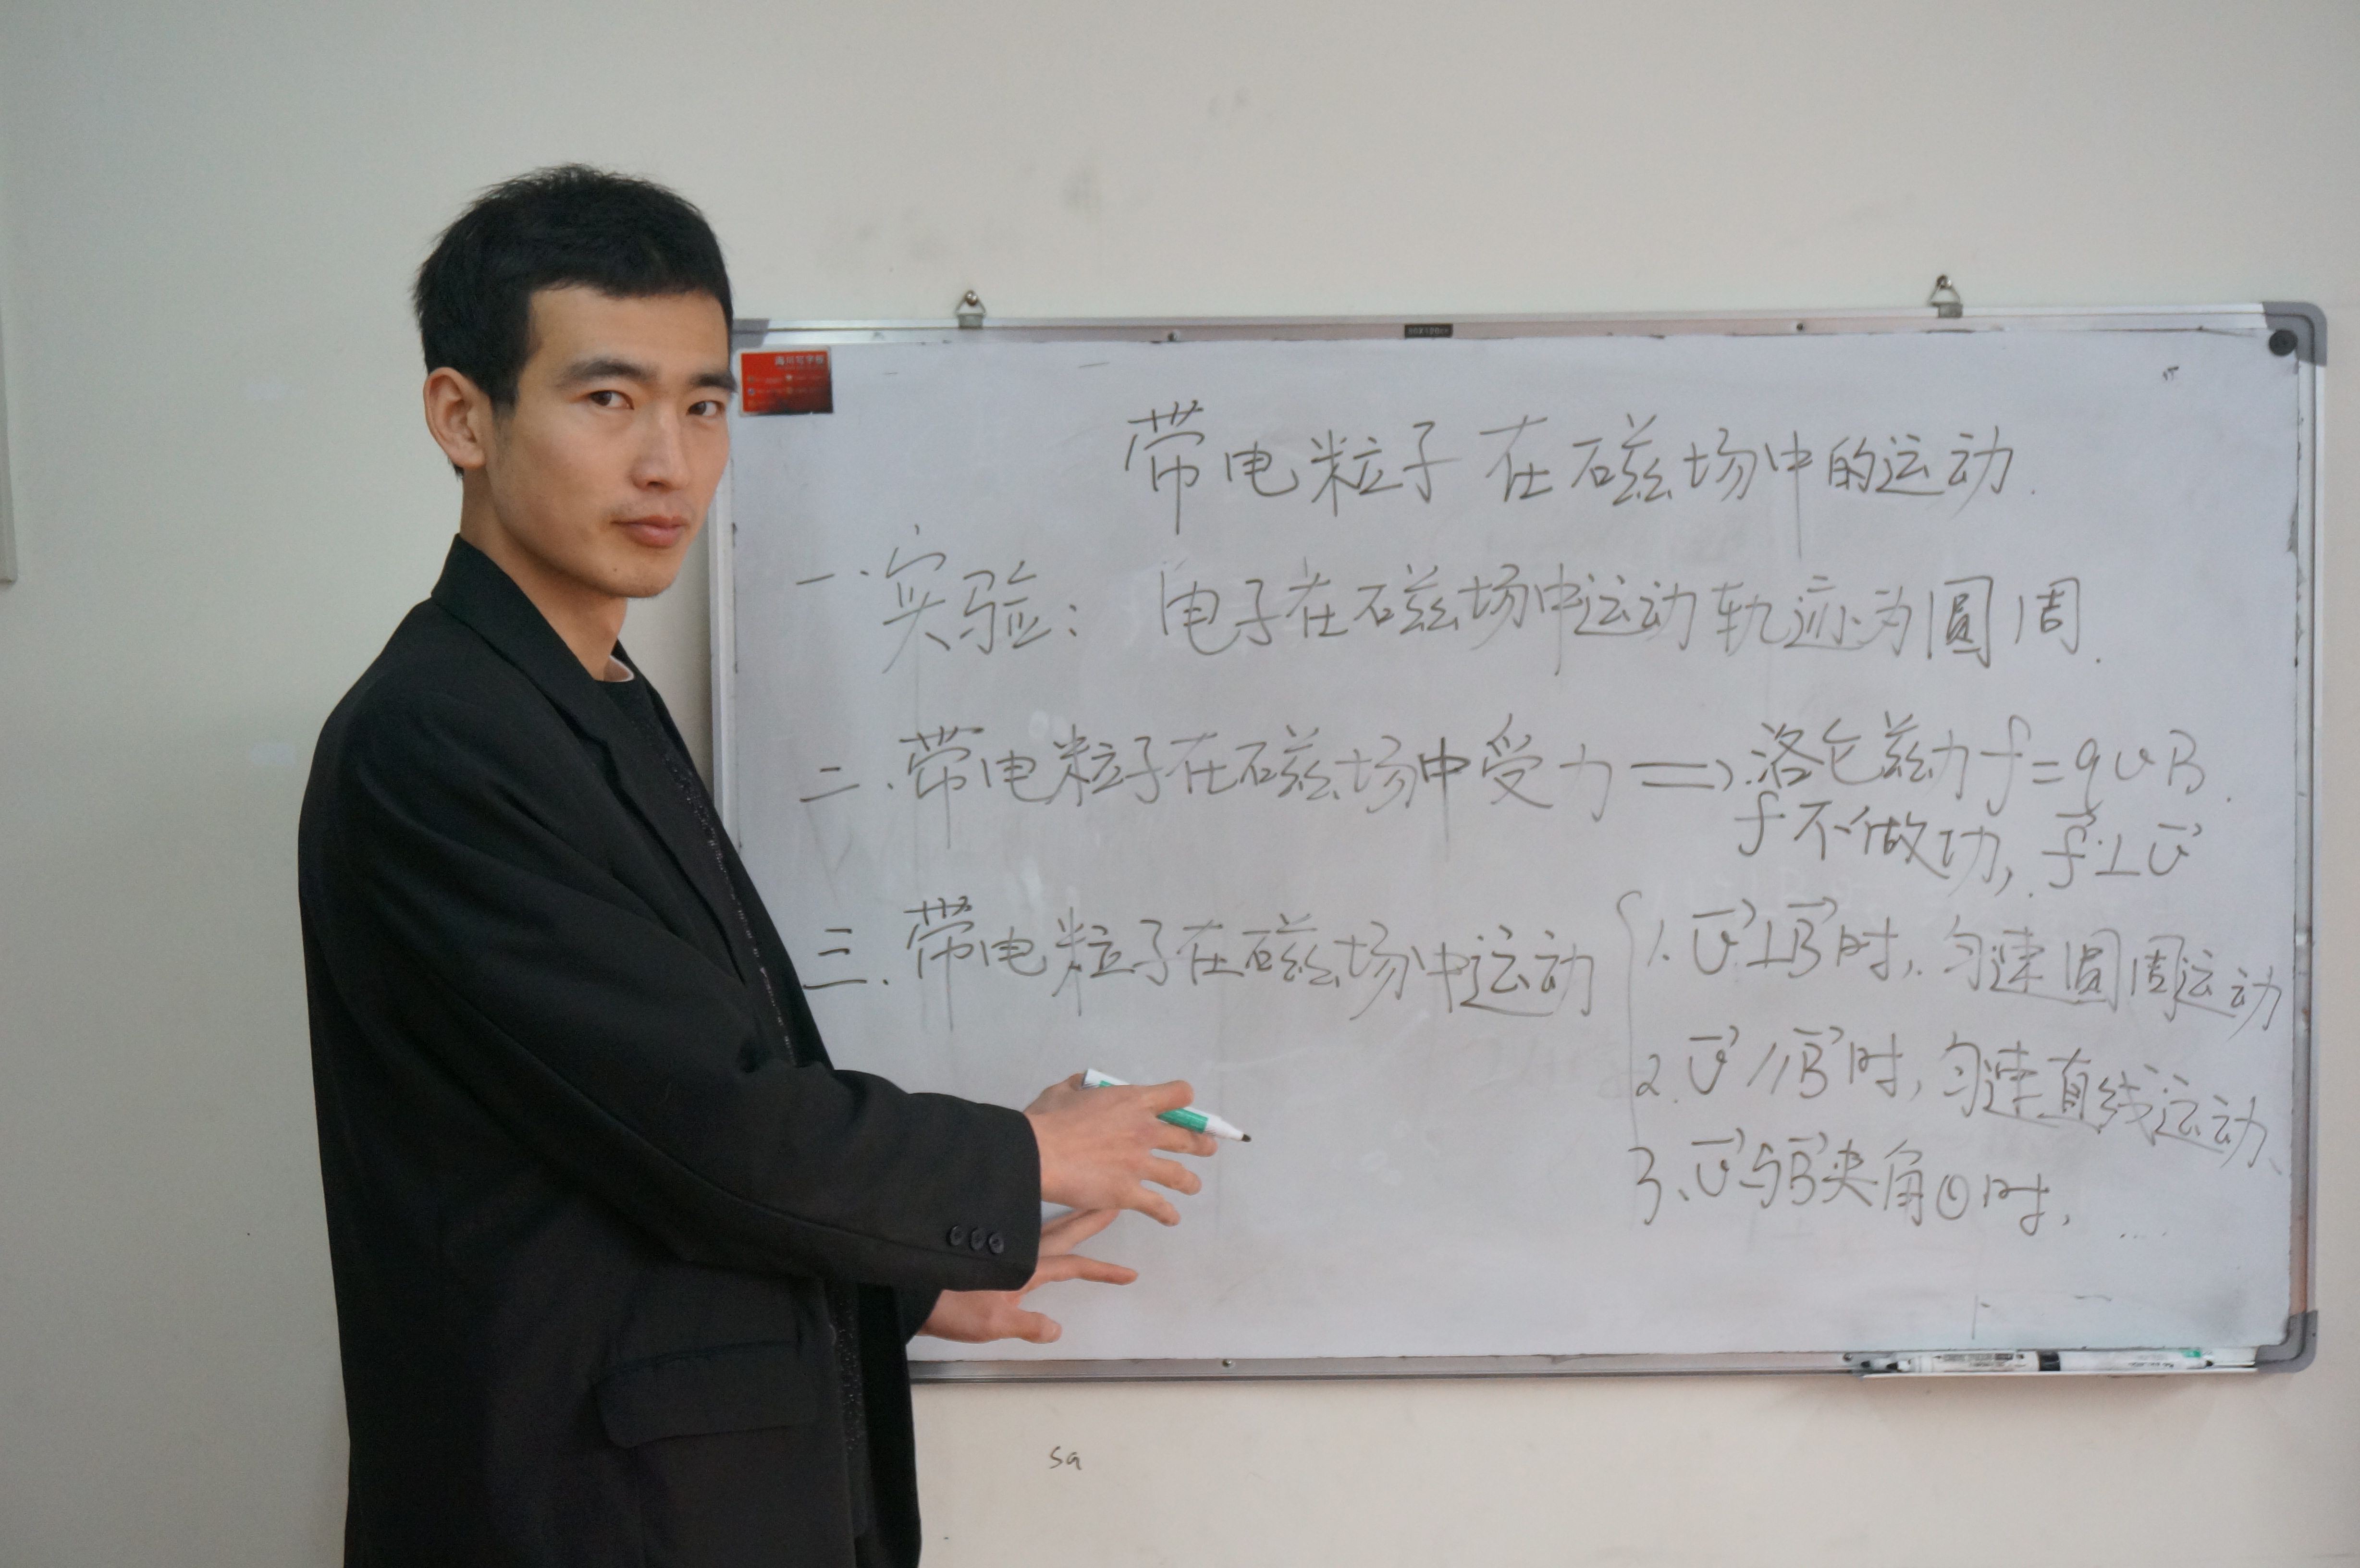 带电粒子在磁场中的运动.
一.实验: 电子在磁场中运动轨迹为圆周.
二.带电粒子在磁场中受力 ⟹ 洛仑兹力 f=qvB.
f不做功, f⃗⊥v⃗
三.带电粒子在磁场中运动
1.v⃗⊥B⃗时, 匀速圆周运动
2.v⃗//B⃗时, 匀速直线运动
3.v⃗与B⃗夹角θ时, ....
sa